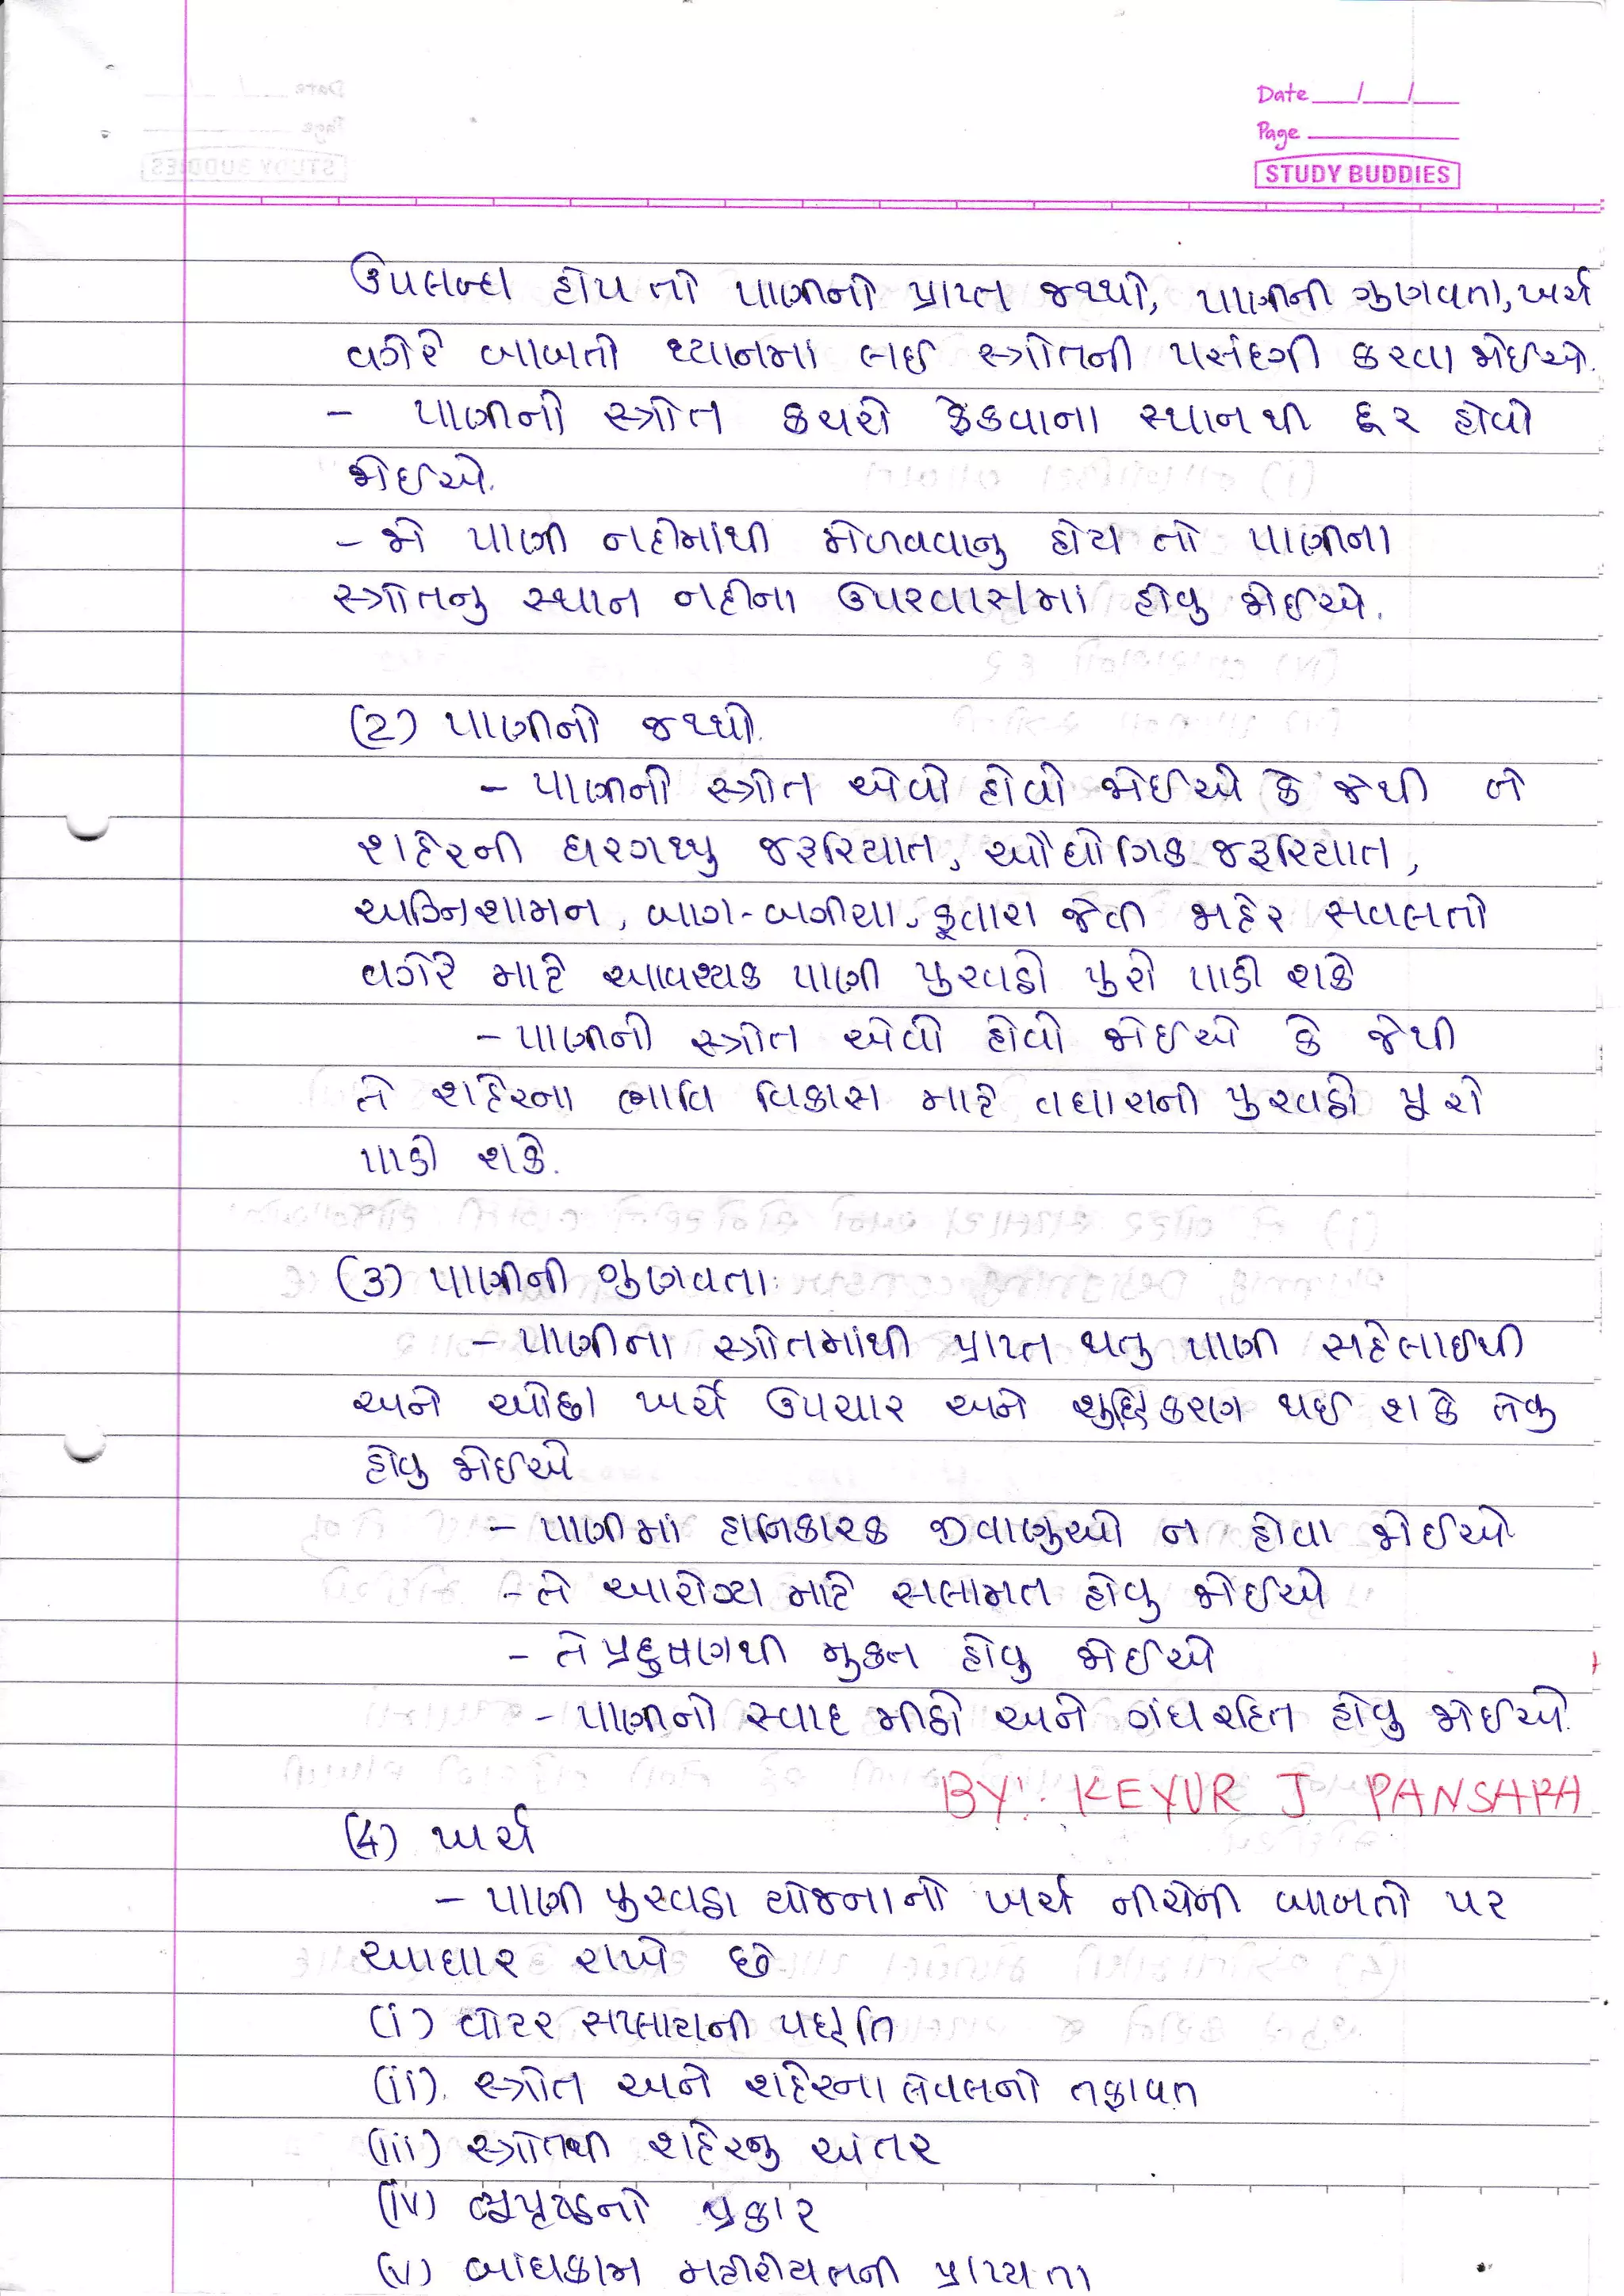 Date __/__/__
Page ______
STUDY BUDDIES
ઉપલબ્ધ હોય તો પાણીનો પ્રાપ્ત જથ્થો, પાણીની ગુણવતા, ખર્ચ
વગેરે બાબતો ધ્યાનમાં લઈ સ્ત્રોતની પસંદગી કરવા જોઈએ.
- પાણીનો સ્ત્રોત કચરો ફેકવાના સ્થાનથી દૂર હોવો
જોઈએ.
- જો પાણી નદીમાંથી મેળવવાનુ હોય તો પાણીના
સ્ત્રોતનુ સ્થાન નદીના ઉપરવાસમાં હોવુ જોઈએ.
(2) પાણીનો જથ્થો.
- પાણીનો સ્ત્રોત એવો હોવો જોઈએ કે જેથી તે
શહેરની ઘરગથ્થુ જરૂરિયાત, ઔધોગિક જરૂરિયાત,
અગ્નિશામન, બાગ-બગીચા, ફૂવારા જેવી જાહેર સવલતો
વગેરે માટે આવશ્યક પાણી પુરવઠો પુરો પાડી શકે
- પાણીનો સ્ત્રોત એવો હોવો જોઈએ કે જેથી
તે શહેરના ભાવિ વિકાસ માટે વધારાનો પુરવઠો પૂરો
પાડી શકે.
(3) પાણીની ગુણવતા:
- પાણીના સ્ત્રોતમાંથી પ્રાપ્ત થતુ પાણી સહેલાઈથી
અને ઓછા ખર્ચે ઉપચાર અને શુદ્ધિકરણ થઈ શકે તેવુ
હોવુ જોઈએ
- પાણીમાં હાનિકારક જીવાણુઓ ન હોવા જોઈએ
- તે આરોગ્ય માટે સલામત હોવુ જોઈએ
- તે પ્રદુષણથી મુકત હોવુ જોઈએ
- પાણીનો સ્વાદ મીઠો અને ગંધરહિત હોવુ જોઈએ.
BY: KEYUR J PANSARA
(4) ખર્ચ
- પાણી પુરવઠા યોજનાનો ખર્ચ નીચેની બાબતો પર
આધાર રાખે છે
(i) વોટર સપ્લાયની પદ્ધતિ
(ii) સ્ત્રોત અને શહેરના લેવલનો તફાવત
(iii) સ્ત્રોતથી શહેરનુ અંતર
(iv) ભૂપૃષ્ઠનો પ્રકાર
(v) બાંધકામ મટીરીયલની પ્રાપ્યતા